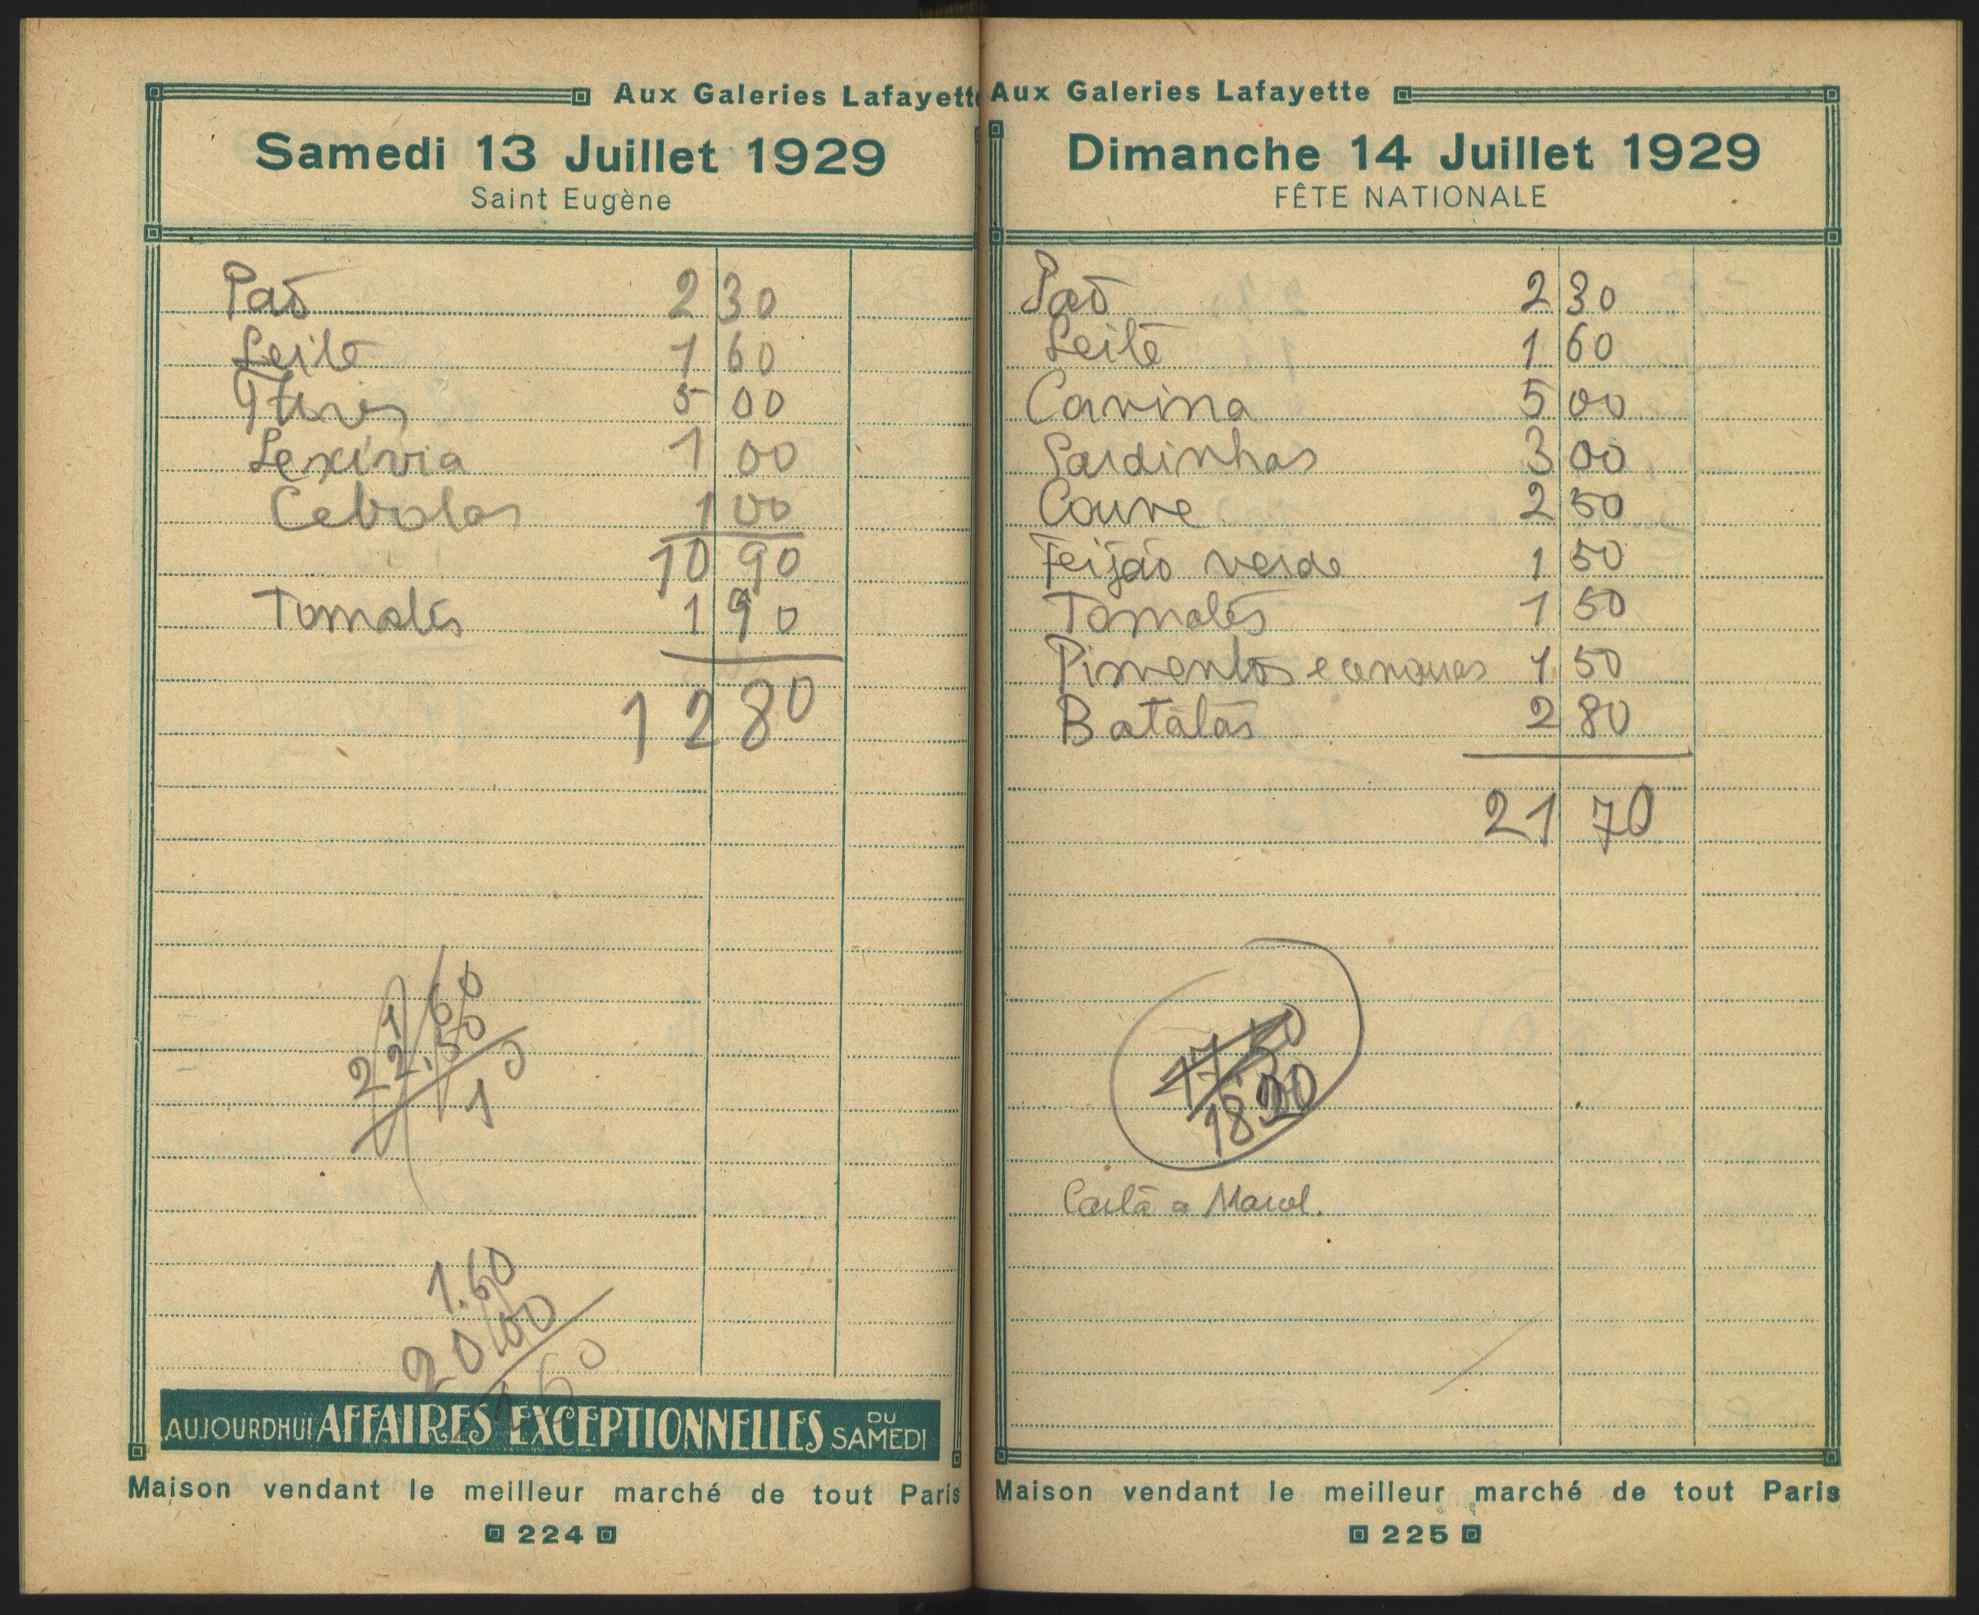 Aux Galeries Lafayett
Samedi 13 Juillet 1929
Saint Eugène
Pão 2 30
Leite 1 60
5 00
Lexivia 1 00
Cebolas 1 00
10 90
Tomates 1 90
12 80
1 60
22.50
1 0
1.60
20 00
1 60
AUJOURDHUI AFFAIRES EXCEPTIONNELLES DU SAMEDI
Maison vendant le meilleur marché de tout Paris
224
Aux Galeries Lafayette
Dimanche 14 Juillet 1929
FÊTE NATIONALE
Pão 2 30
Leite 1 60
5 00
Sardinhas 3 00
Couve 2 50
Feijão verde 1 50
Tomates 1 50
Pimentos e 1 50
Batatas 2 80
21 70
Carta a
Maison vendant le meilleur marché de tout Paris
225